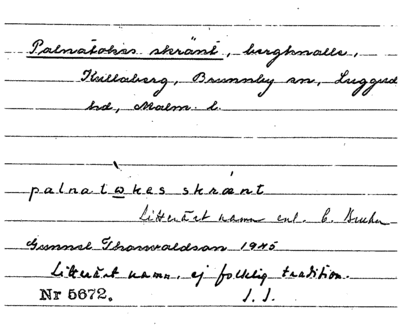 Palnatokes skränt, bergknalle,
Kullaberg, Brunnby sn, Luggude
hd, Malm. l.
palnatωkes skrænt
Litterärt namn enl. C.
Gunnel Thorwaldson 1945
Litterärt namn, ej folklig tradition.
Nr 5672. I. I.